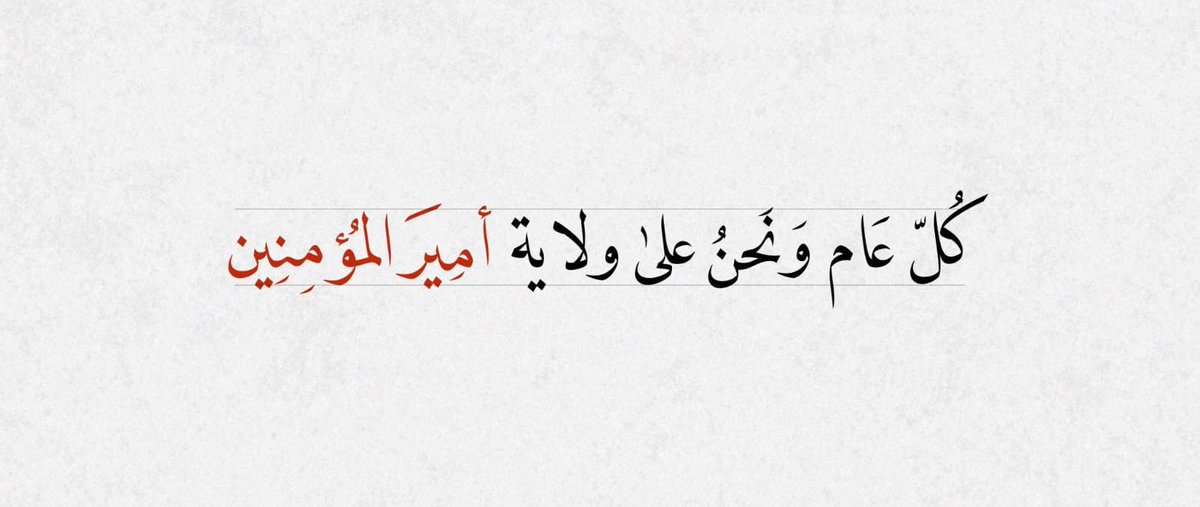 كُلّ عَام وَنَحنُ علىٰ ولاية أمِيرَ المُؤمِنِين